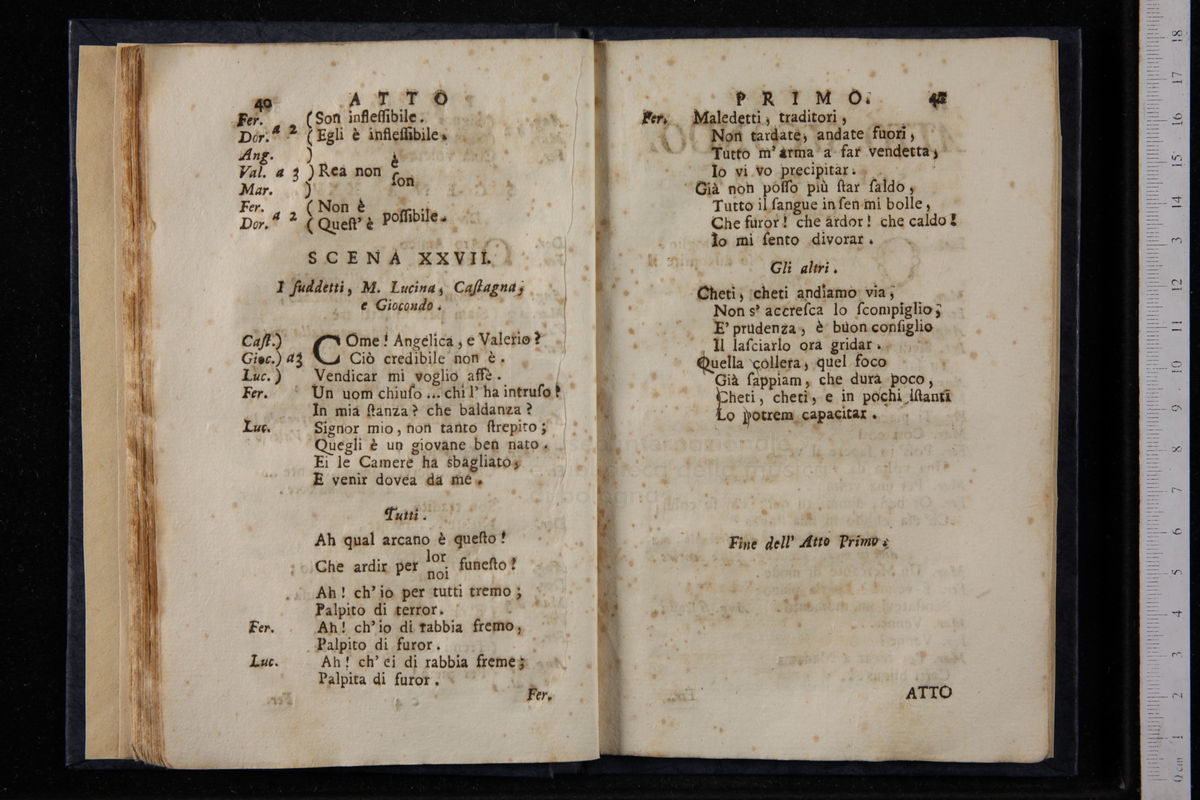 40 ATTO
Fer. a 2 ( Son inflessibile.
Dor. ( Egli è inflessibile.
Ang. )
Val. a 3 ) Rea non è
Mar. ) son
Fer. a 2 ( Non è
Dor. ( Quest' è possibile.
SCENA XXVII.
I suddetti, M. Lucina, Castagna,
e Giocondo.
Cast.) COme! Angelica, e Valerio?
Gioc.) a3 Ciò credibile non è.
Luc.) Vendicar mi voglio affè.
Fer. Un uom chiuso ... chi l' ha intruso?
In mia stanza? che baldanza?
Luc. Signor mio, non tanto strepito;
Quegli è un giovane ben nato.
Ei le Camere ha sbagliato,
E venir dovea da me.
Tutti.
Ah qual arcano è questo!
Che ardir per lor funesto!
noi
Ah! ch' io per tutti tremo;
Palpito di terror.
Fer. Ah! ch' io di rabbia fremo,
Palpito di furor.
Luc. Ah! ch' ei di rabbia freme;
Palpita di furor.
Fer.
PRIMO. 41
Fer. Maledetti, traditori,
Non tardate, andate fuori,
Tutto m' arma a far vendetta,
Io vi vo precipitar.
Già non posso più star saldo,
Tutto il sangue in sen mi bolle,
Che furor! che ardor! che caldo!
Io mi sento divorar.
Gli altri.
Cheti, cheti andiamo via,
Non s' accresca lo scompiglio;
E' prudenza, è buon consiglio
Il lasciarlo ora gridar.
Quella collera, quel foco
Già sappiam, che dura poco,
Cheti, cheti, e in pochi istanti
Lo potrem capacitar.
Fine dell' Atto Primo.
ATTO
0 cm 1 2 3 4 5 6 7 8 9 10 11 12 13 14 15 16 17 18